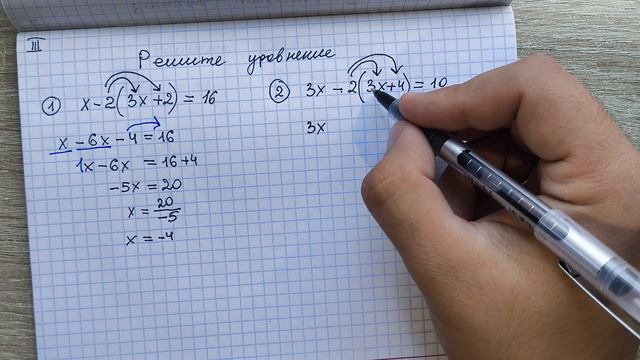 III
Решите уравнение
① x - 2(3x + 2) = 16
x - 6x - 4 = 16
1x - 6x = 16 + 4
-5x = 20
x = 20/-5
x = -4
② 3x - 2(3x + 4) = 10
3x